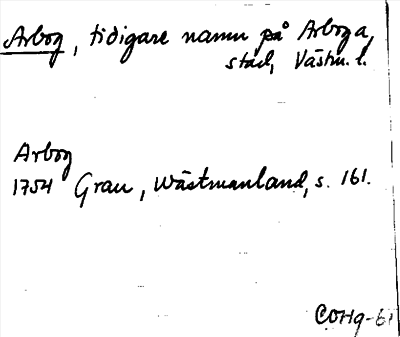 Arbog, tidigare namn på Arboga,
stad, Västm. l.
Arbog
1754 Grau, Wästmanland, s. 161.